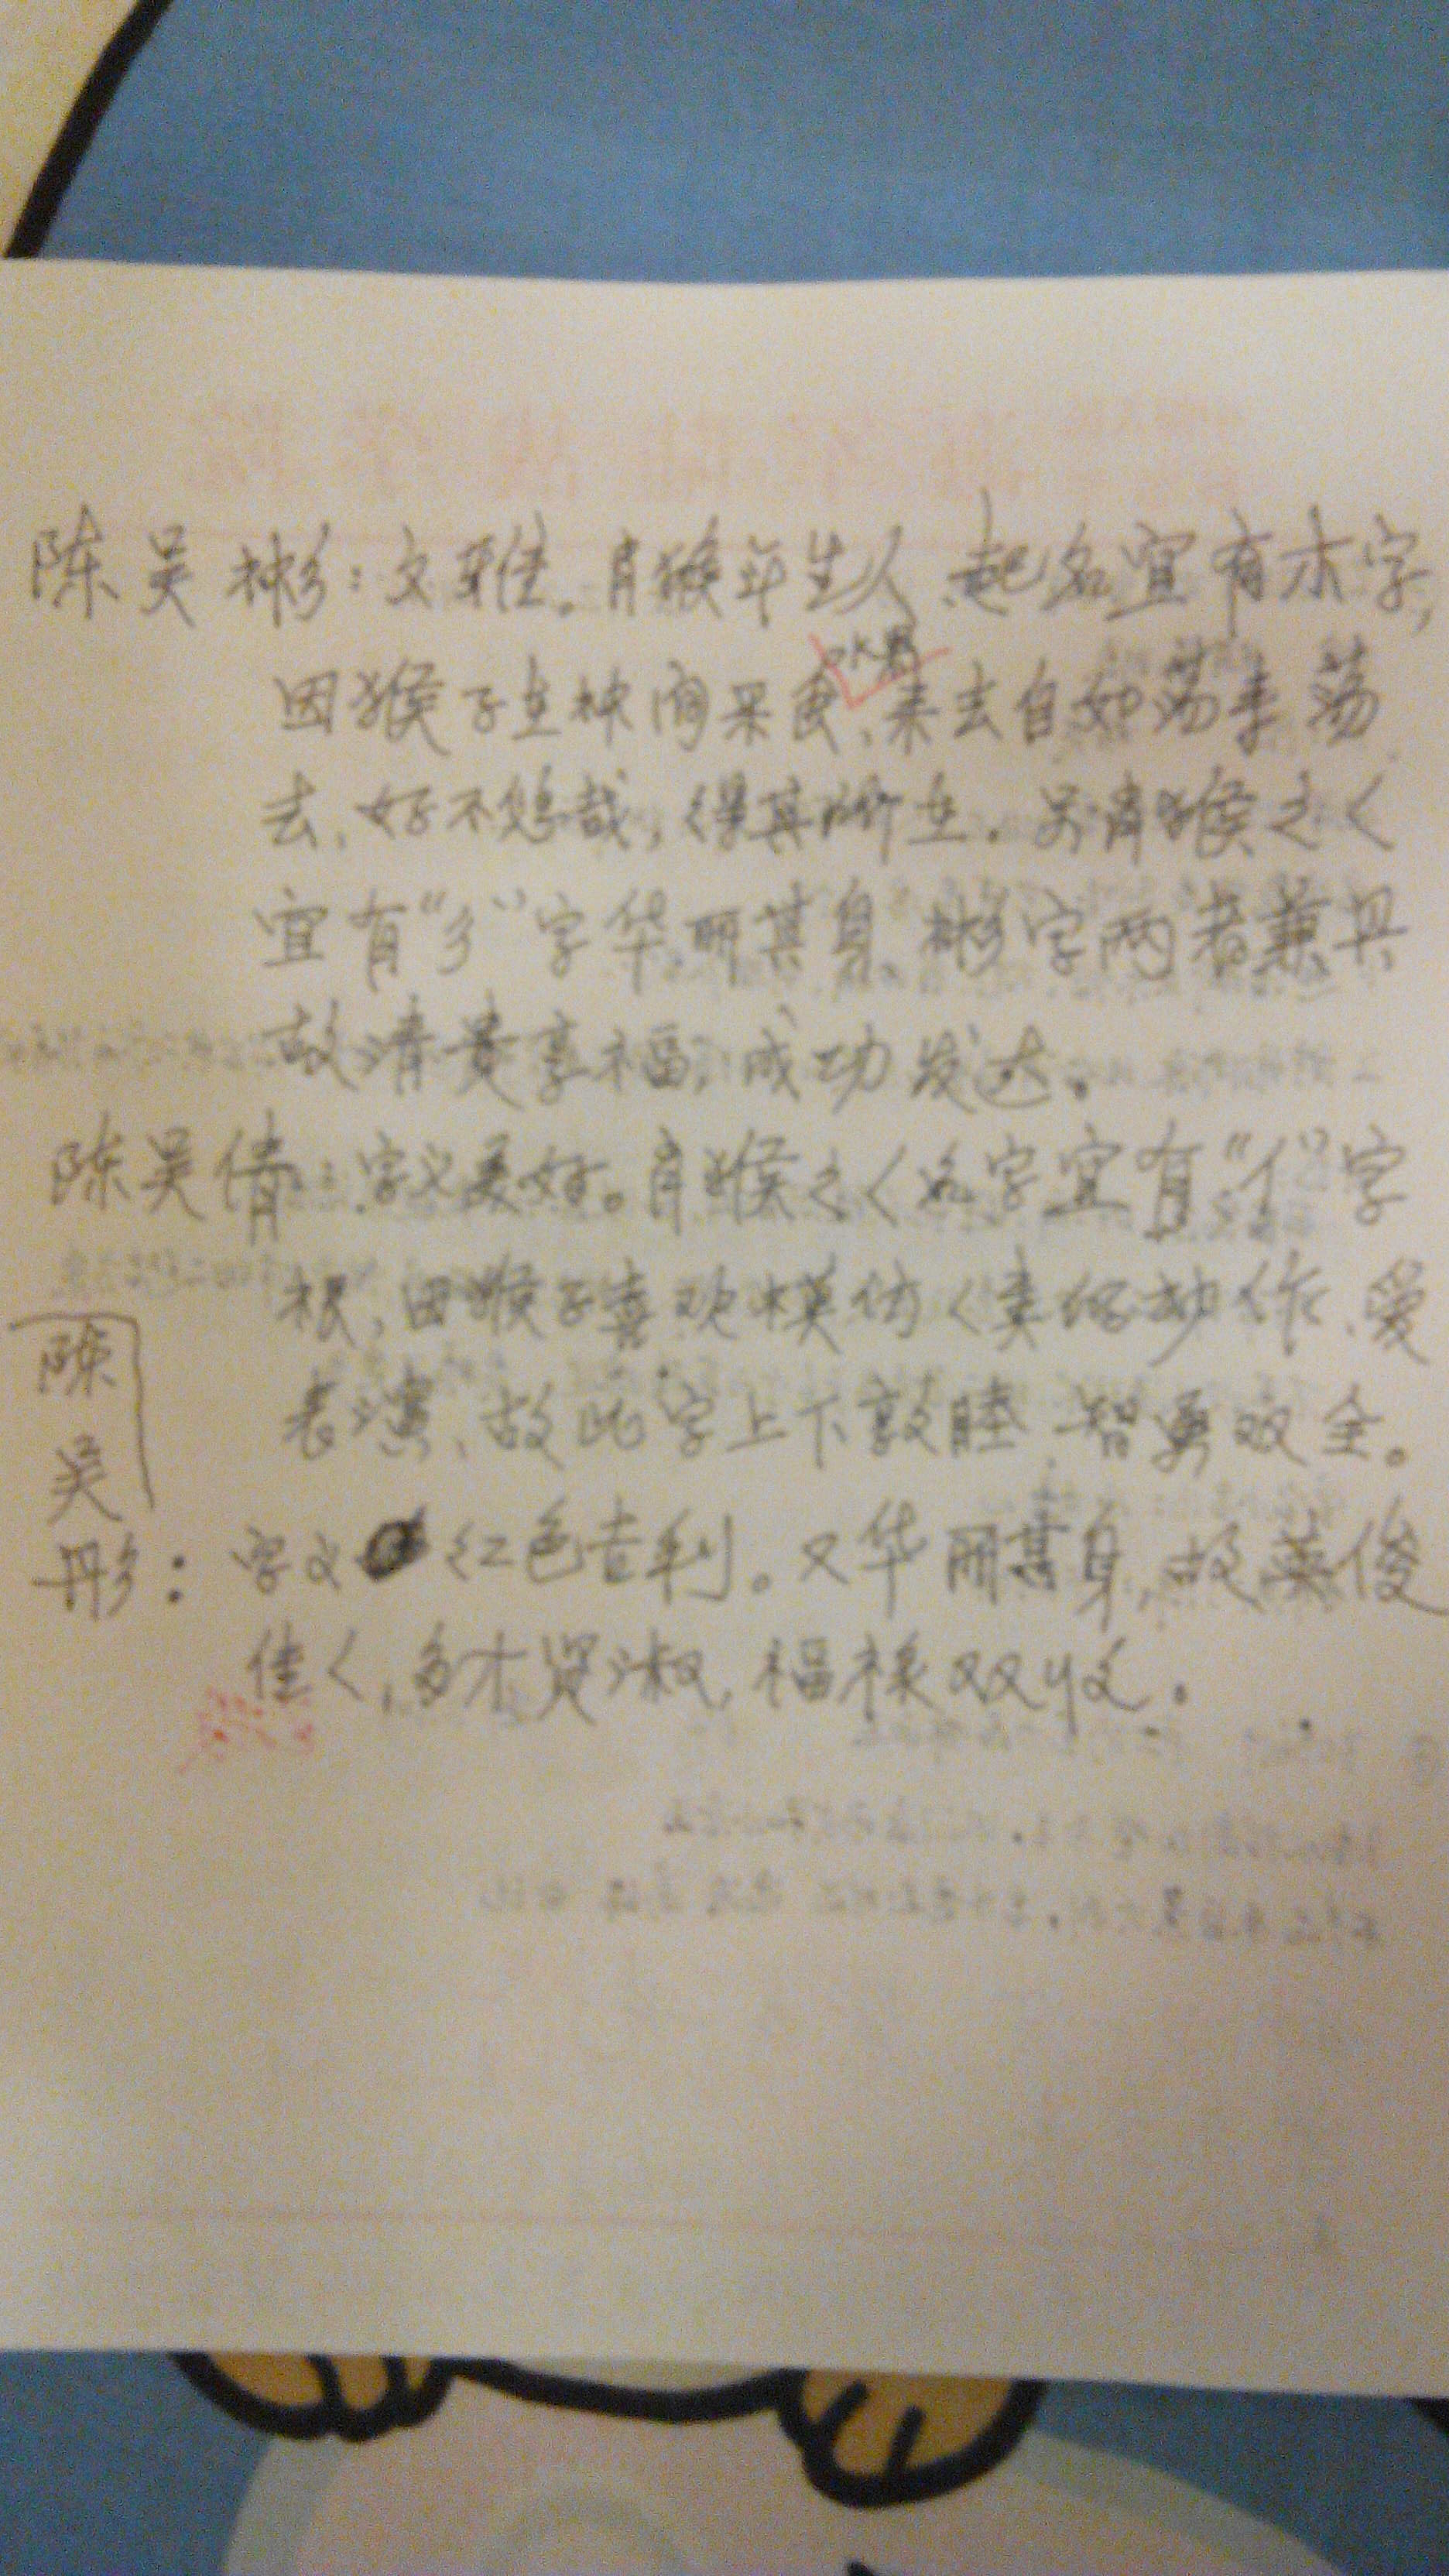 陈吴彬：文雅。肖猴年生人、起名宜有木字，
因猴子在林间采食、来去自如荡来荡
去、好不悠哉，得其所在。另肖猴之人
宜有“彡”字华丽其身、彬字两者兼具
故清贵享福，成功发达。
陈吴倩：字义美好。肖猴之人名字宜有“亻”字
根，因猴子喜欢模仿人类的动作、爱
表演、故此字上下敦睦 智勇双全。
陈
吴
彤：字义红色吉利。又华丽其身，故英俊
佳人，多才贤淑，福禄双收。